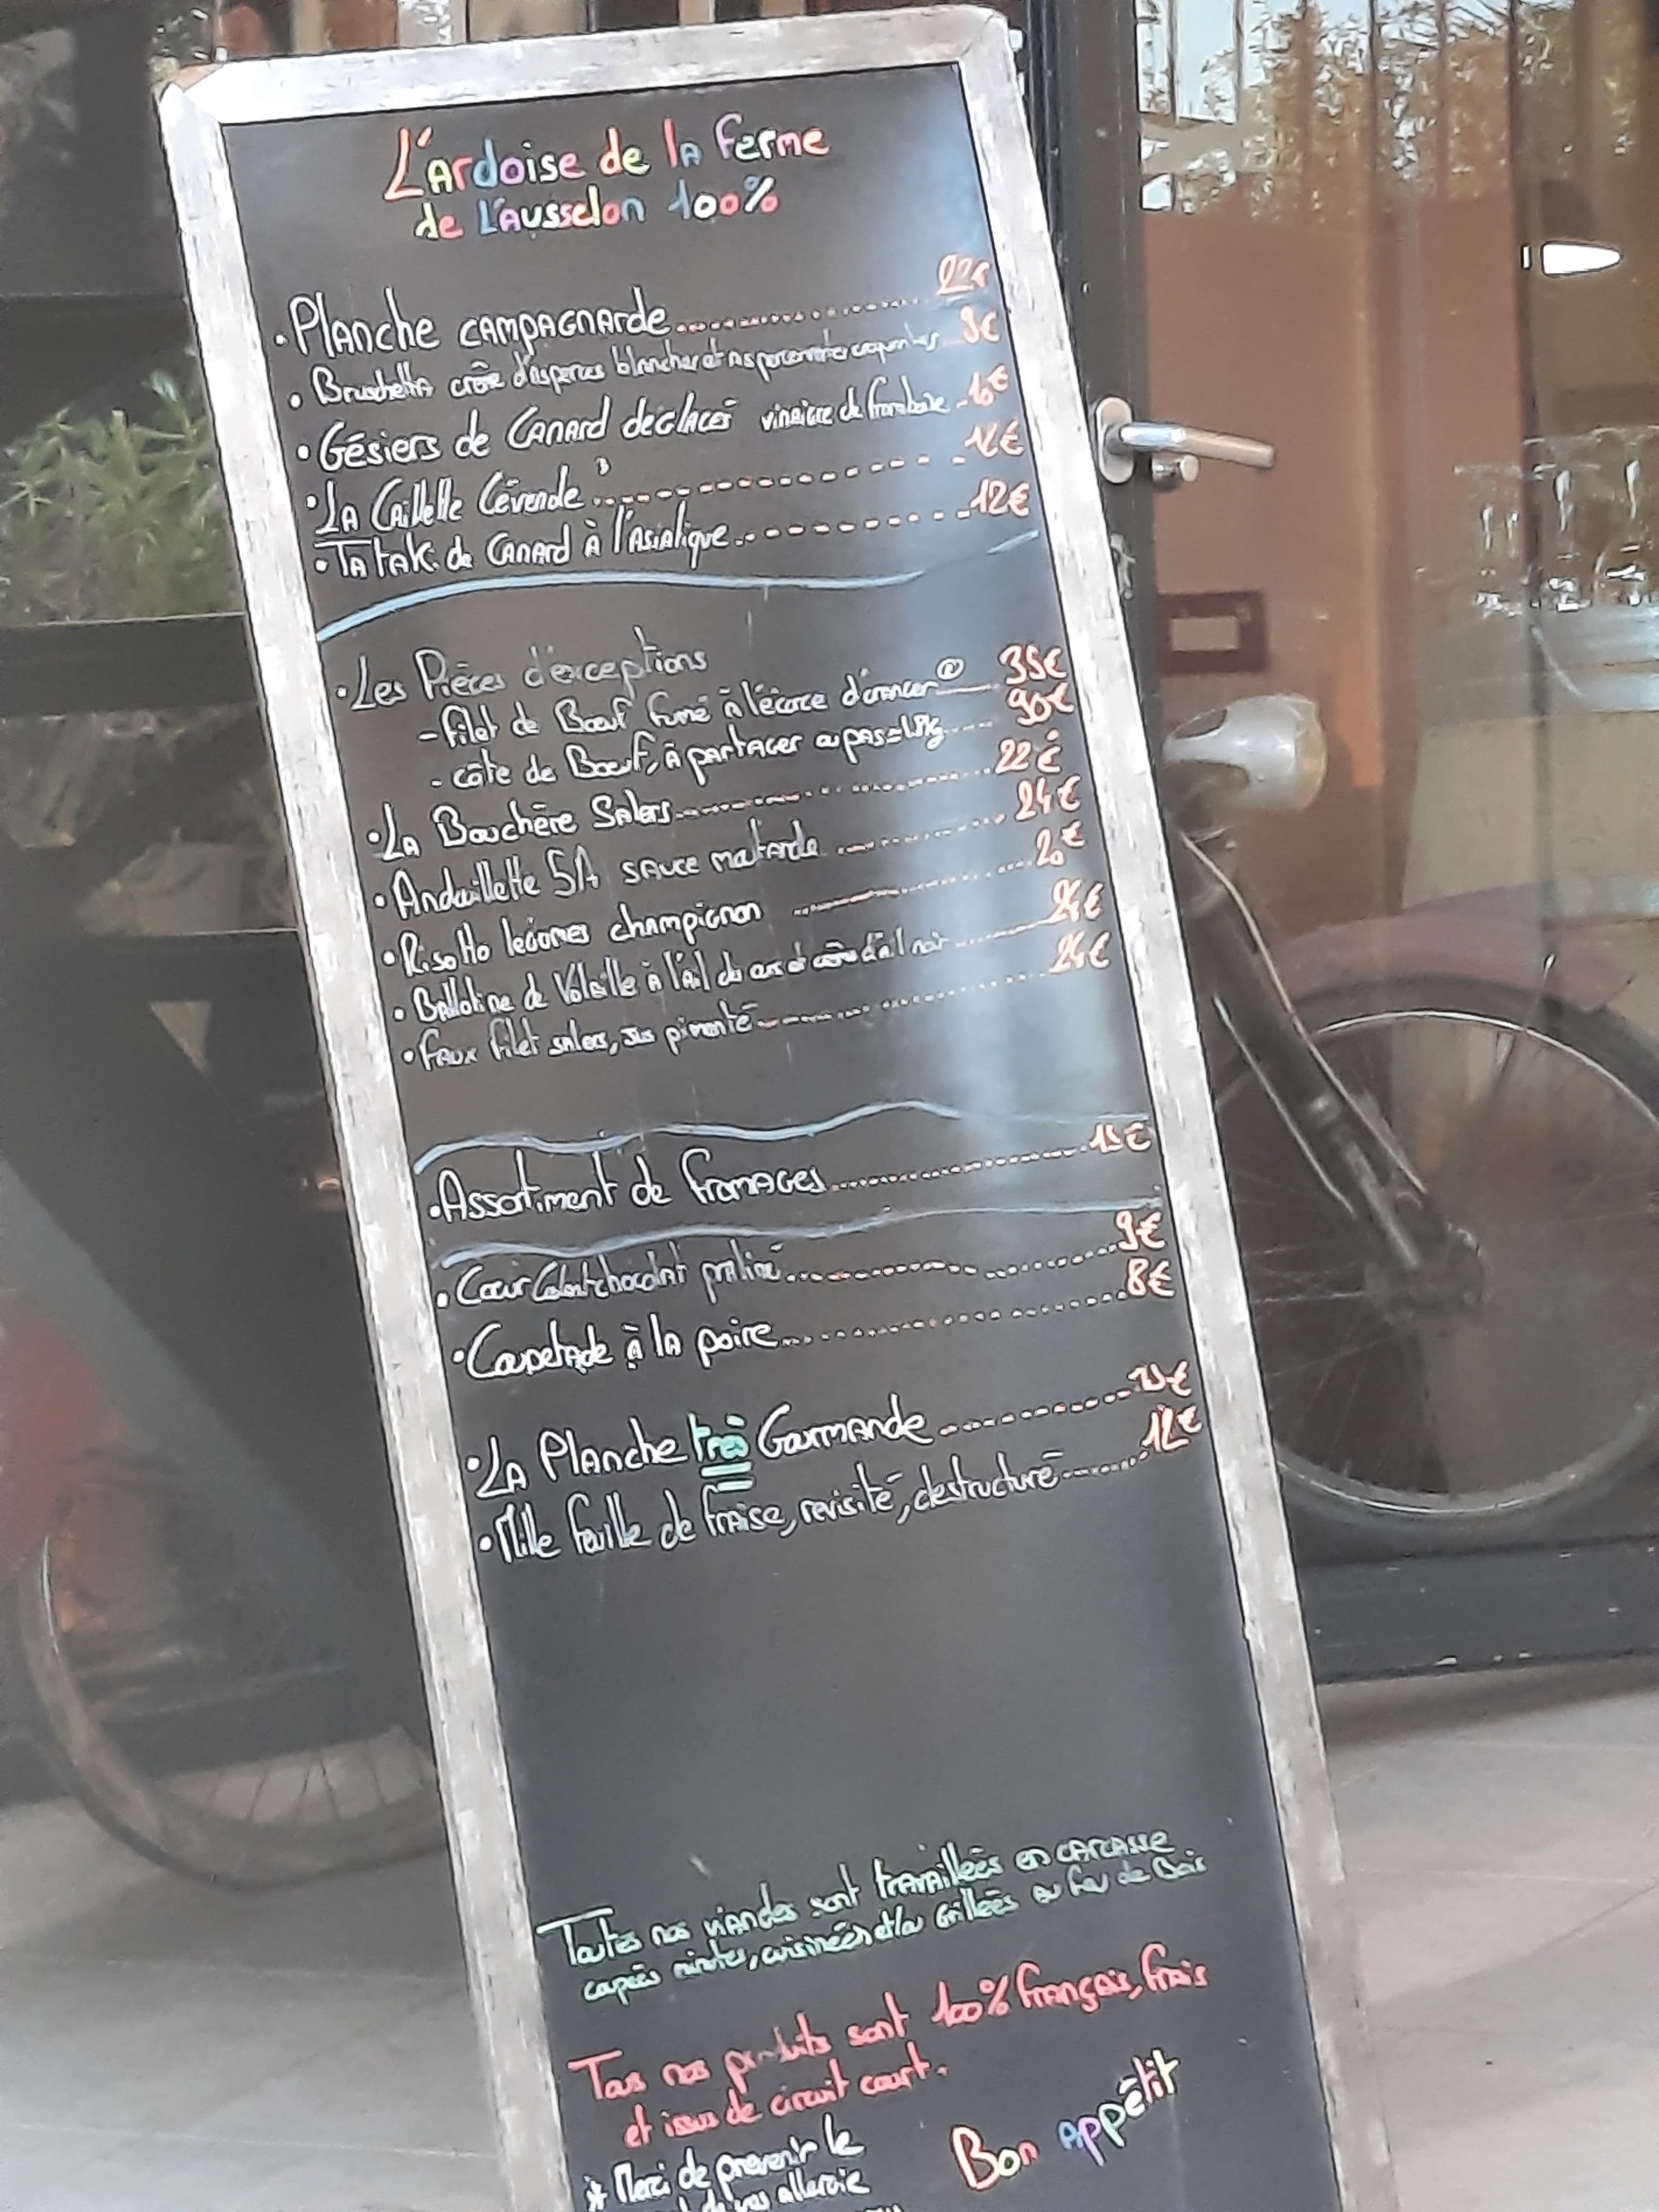 L'Ardoise de la Ferme
de L'Ausselon 100%
• Planche campagnarde 22€
• Bruschetta crème d'asperges blanches et asperges vertes croquantes 9€
• Gésiers de Canard déglacés vinaigre de framboise 10€
• La Caillette Cévenole 12€
• Tataki de Canard à l'Asiatique 12€
• Les Pièces d'exceptions
- filet de Bœuf fumé à l'écorce d'oranger 35€
- côte de Bœuf, à partager 90€
• La Bouchère Salers 22€
• Andouillette 5A sauce moutarde 24€
• Risotto légumes champignon 20€
• Ballotine de Volaille à l'Ail des ours et crème d'ail noir 24€
• Faux filet salers, jus pimenté 24€
• Assortiment de Fromages 15€
• Cœur Coulant chocolat praliné 9€
• Coupetade à la poire 8€
• La Planche très Gourmande
• Mille feuille de fraise, revisité, destructuré 12€
Toutes nos viandes sont travaillées en carcasse
coupées minutes, cuisinées et/ou Grillées au feu de Bois
Tous nos produits sont 100% Français, frais
et issus de circuit court.
* Merci de prévenir le
de vos allergie
Bon appétit